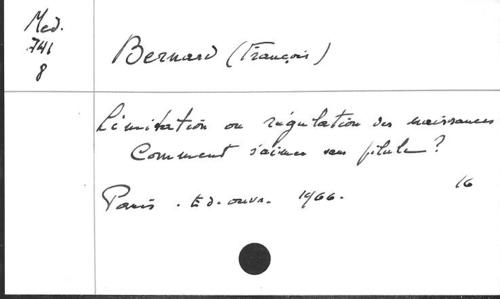 Med.
741
8
Bernard (François)
Limitation ou régulation des naissances
Comment s'aimer sans pilule ?
Paris . Ed. ouvr. 1966. 16